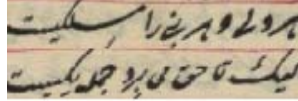 هر ولی و هر نبی را مسلکیست
لیک تا حق می برد جمله یکیست